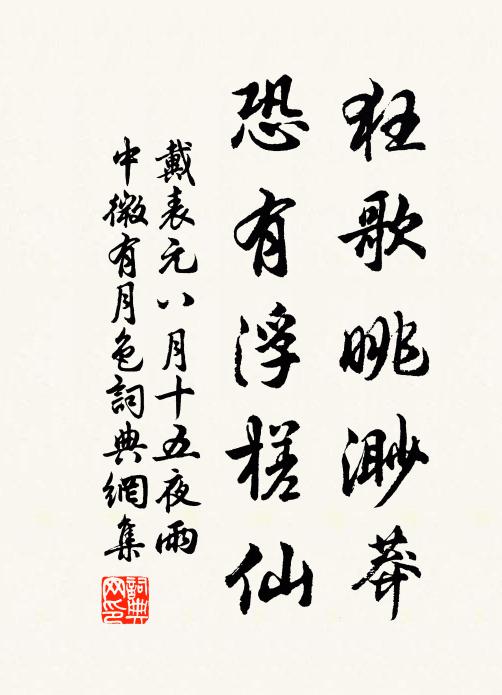 狂歌眺渺莽
恐有浮槎仙
戴表元八月十五夜雨
中微有月色詞典網集
詞典
网印